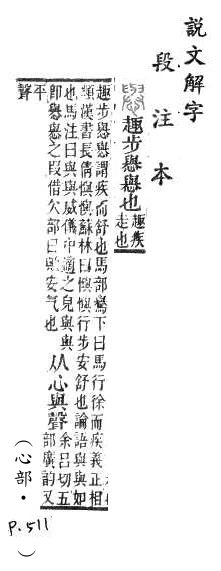 說文解字
段注本
趣步𢣻𢣻也
趣疾
走也
趣步𢣻𢣻謂疾而舒也馬部䮷下曰馬行徐而疾義正相
類漢書長倩懙懙蘇林曰懙懙行步安舒也論語與與如
也馬注曰與與威儀中適之皃與與
卽𢣻𢣻之叚借欠部曰歟安气也
从心與聲
余呂切五
部廣韵又
平
聲
(心部・
P.511)